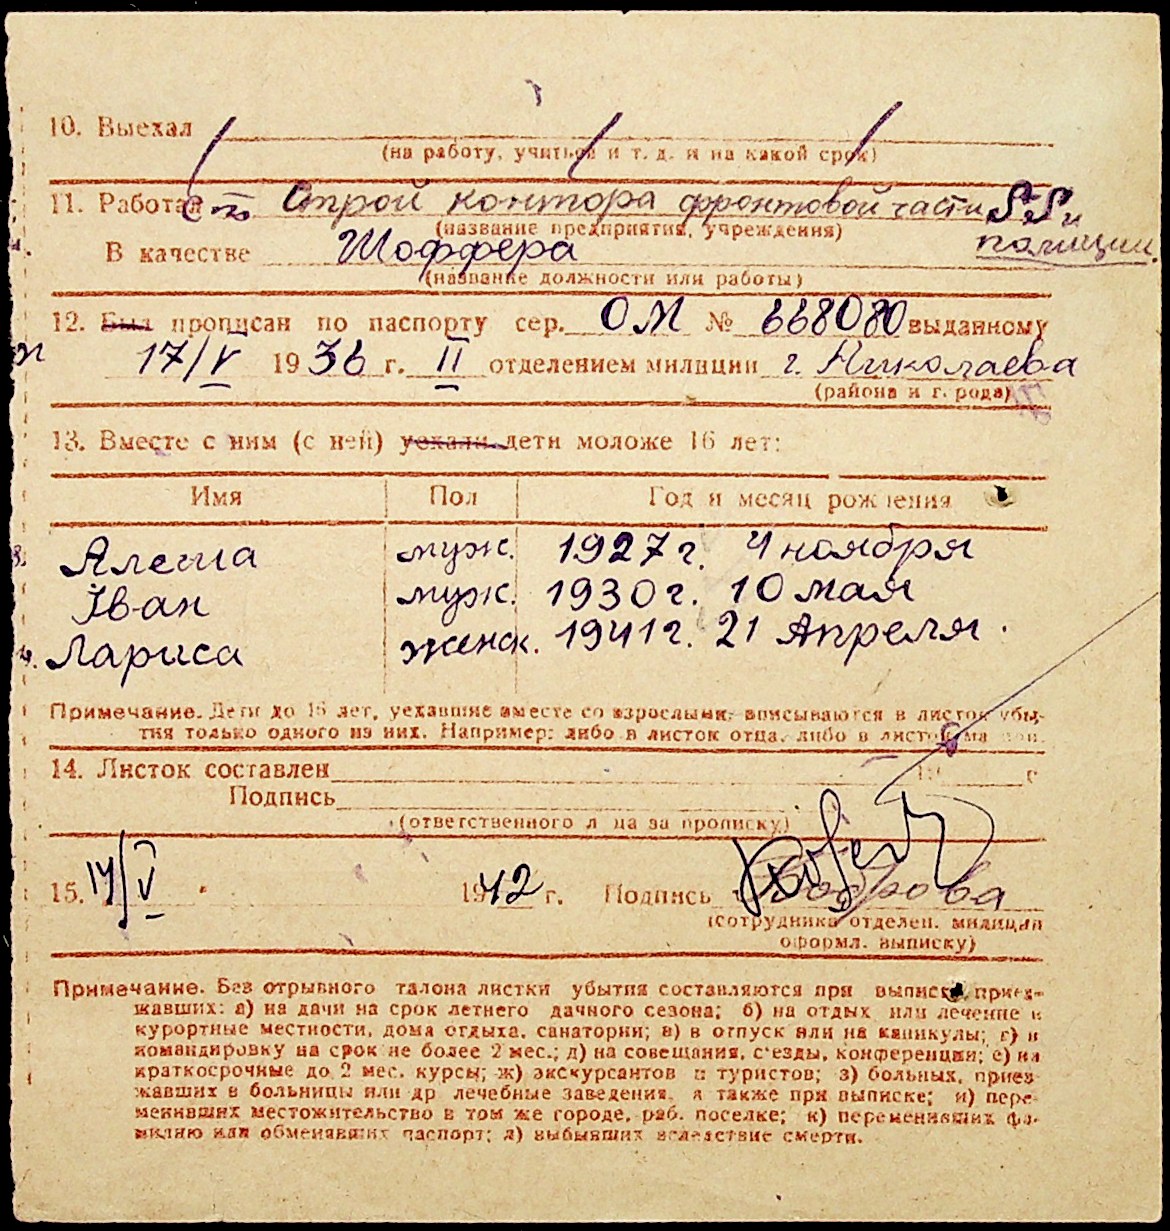 10. Выехал
(на работу, учиться и т. д. и на какой срок)
11. Работал Строй контора фронтовой части SS и
(название предприятия, учреждения)
полиции.
В качестве Шоффера
(название должности или работы)
12. Был прописан по паспорту сер. ОМ № 668080 выданному
17/V 1936 г. II отделением милиции г. Николаева
(района и города)
13. Вместе с ним (с ней) уехали дети моложе 16 лет:
Имя Пол Год и месяц рождения
Алеша муж. 1927 г. 4 ноября
Іван муж. 1930 г. 10 мая
Лариса женск. 1941 г. 21 Апреля.
Примечание. Дети до 16 лет, уехавшие вместе со взрослыми, вписываются в листок убы-
тия только одного из них. Например: либо в листок отца, либо в листок матери.
14. Листок составлен 19 г.
Подпись
(ответственного лица за прописку)
15. 14/V 1942 г. Подпись
(сотрудника отделен. милиции
оформл. выписку)
Примечание. Без отрывного талона листки убытия составляются при выписке приез-
жавших: а) на дачи на срок летнего дачного сезона; б) на отдых или лечение в
курортные местности, дома отдыха, санатории; в) в отпуск или на каникулы; г) в
командировку на срок не более 2 мес.; д) на совещания, с'езды, конференции; е) на
краткосрочные до 2 мес. курсы; ж) экскурсантов и туристов; з) больных, приез-
жавших в больницы или др лечебные заведения, а также при выписке; и) пере-
менивших местожительство в том же городе, раб. поселке; к) переменивших фа-
милию или обменявших паспорт; л) выбывших вследствие смерти.